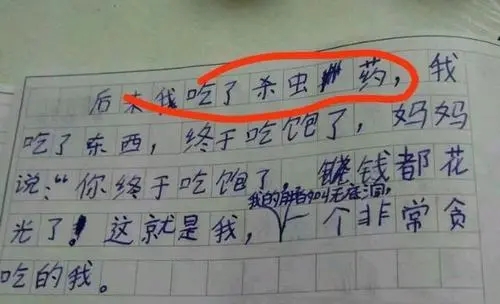 后来我吃了杀虫药，我
吃了东西，终于吃饱了，妈妈
说：“你终于吃饱了，赚钱都花
我的肚子叫无底洞，
光了！这就是我，一个非常贪
吃的我。